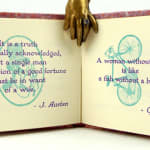 It is a truth
ally acknowledged,
at a single man
sion of a good fortune
st be in want
of a wife.
- J. Austen
A woman without
is like
a fish without a b
- G